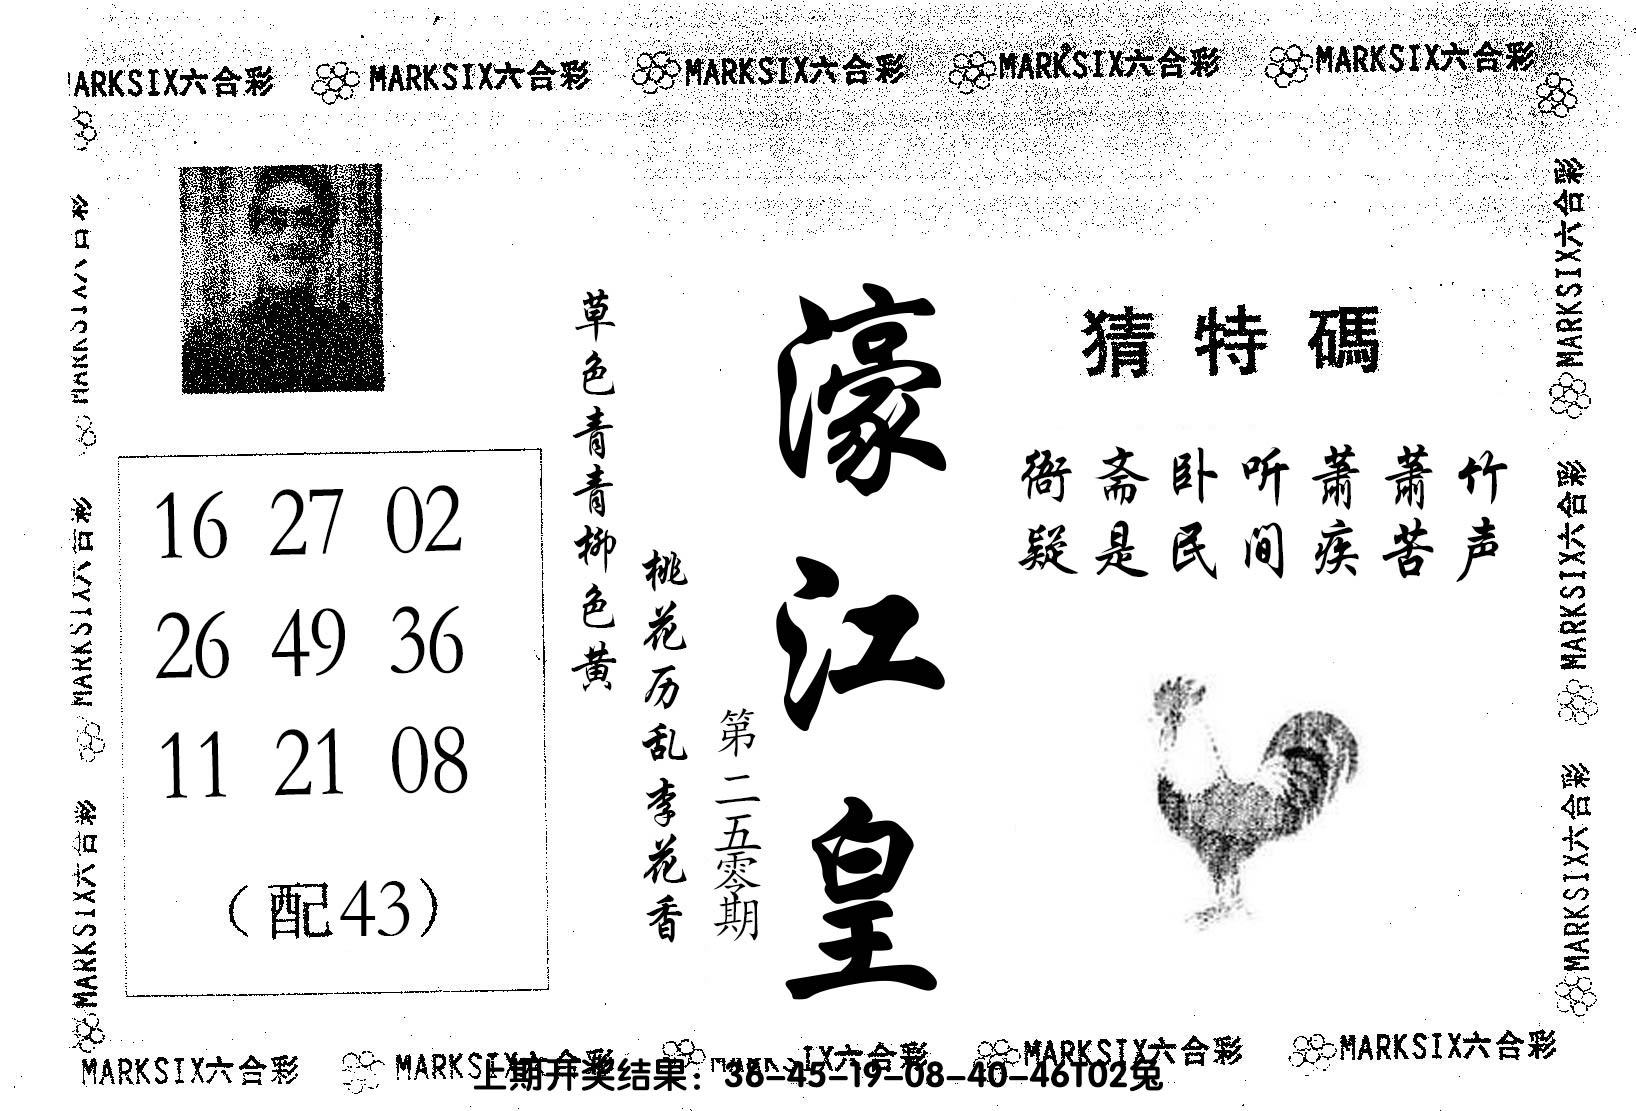 MARKSIX六合彩 MARKSIX六合彩 MARKSIX六合彩 MARKSIX六合彩
ARKSIX六合彩
猜特碼
衙斋卧听萧萧竹
疑是民间疾苦声
濠江皇
第二五零期
草色青青柳色黄
桃花历乱李花香
16 27 02
26 49 36
11 21 08
（配43）
MARKSIX六合彩
MARKSIX六合彩
MARKSIX六合彩
MARKSIX六合彩
MARKSIX六合彩
MARKSIX六合彩 MARKSIX六合彩 IX六合彩 MARKSIX六合彩 MARKSIX六合彩
上期开奖结果：36-45-19-08-40-46T02兔